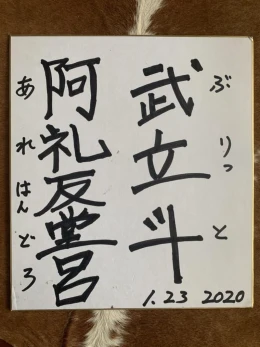 武立斗
ぶりっと
阿礼反堂呂
あれはんどろ
1.23 2020